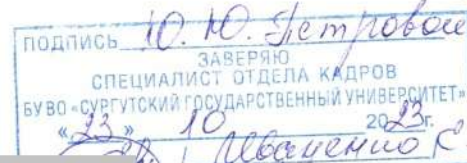 ПОДПИСЬ Ю. Ю. Петровой
ЗАВЕРЯЮ
СПЕЦИАЛИСТ ОТДЕЛА КАДРОВ
БУ ВО «СУРГУТСКИЙ ГОСУДАРСТВЕННЫЙ УНИВЕРСИТЕТ»
«23» 10 2023г.